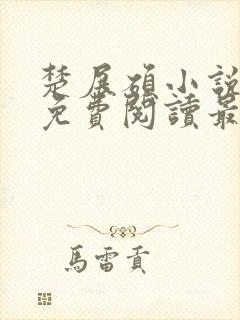 楚展碩小說
免費閱讀最
馬雷貢